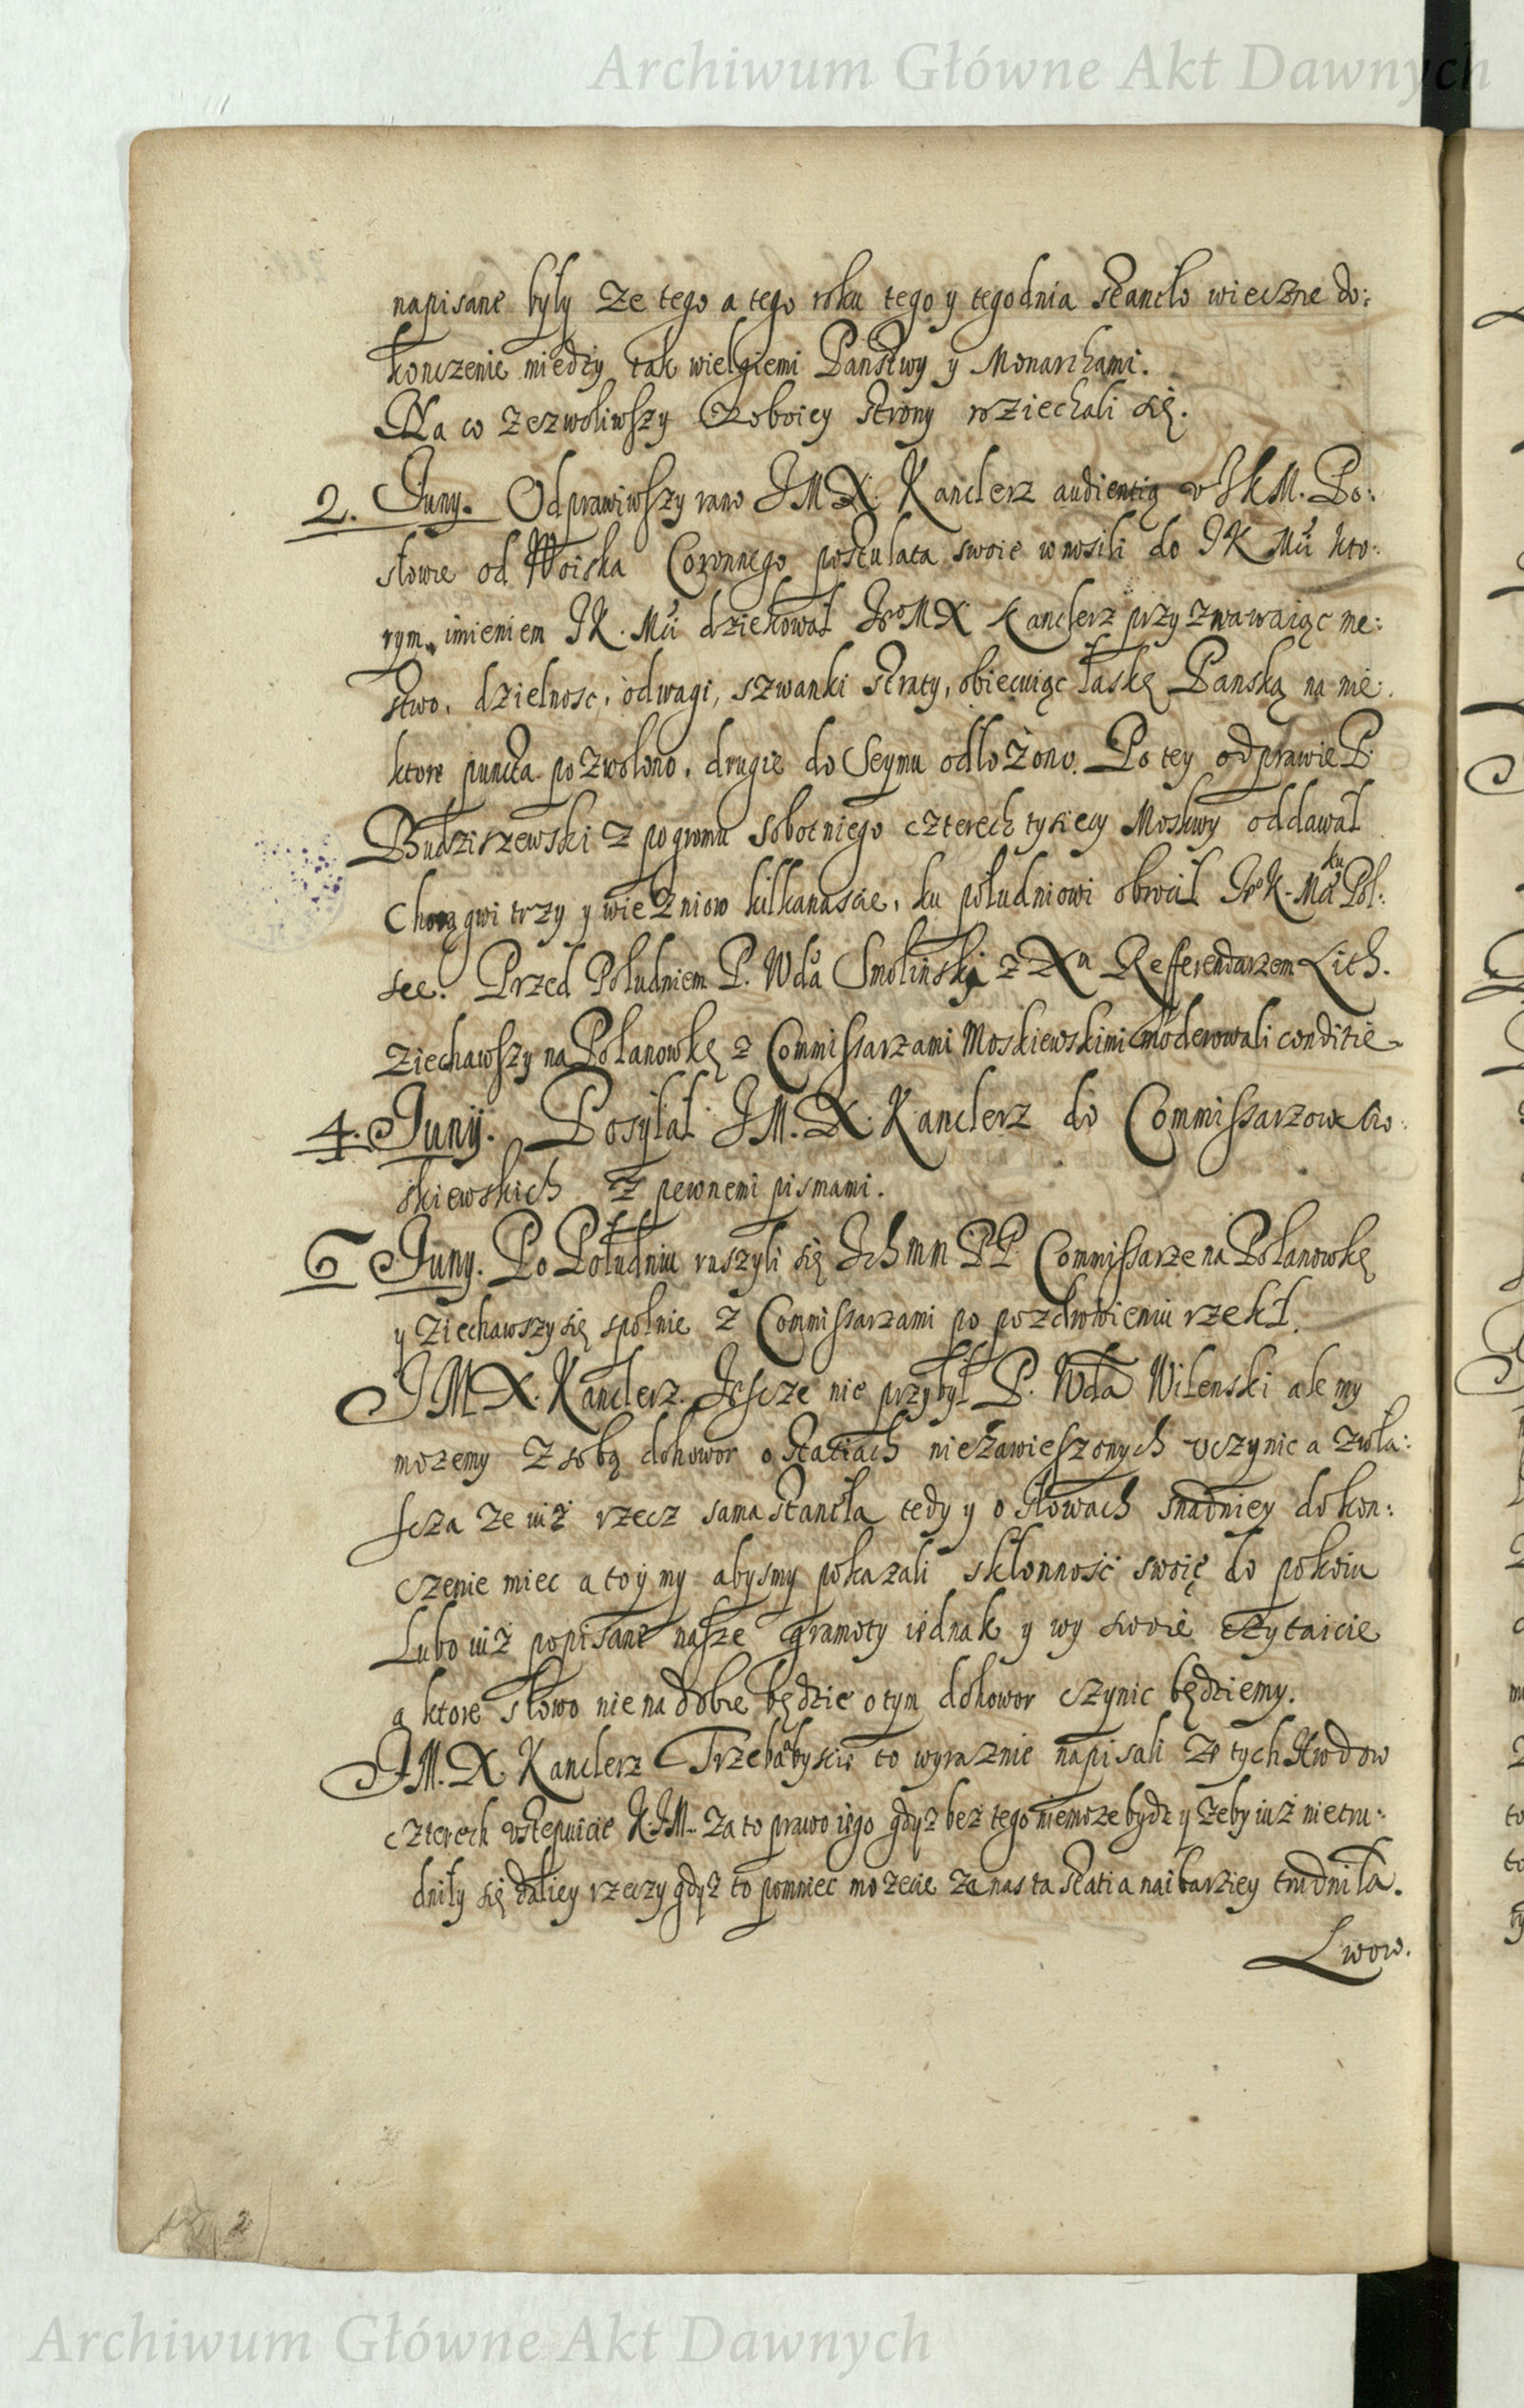 Archiwum Główne Akt Dawnych
napisane były Ze tego a tego roku tego y tego dnia stanęło wieczne do:
konczenie między tak wielgiemi Panstwy y Monarchami.
Na co zezwoliwszy Zoboiey strony rozjechali się.
2. Juny. Odprawiwszy rano JMX. Kanclerz audientią v JKM. Po:
słowie od Woiska Coronnego postulata swoie wnosili do JK Mći kto:
rym imieniem JK. Mći dziekował JeoMX Kanclerz przyznawaiąc me:
stwo, dzielnosc, odwagi, szwanki straty, obiecuiąc łaskę Panską na nie:
ktore puncta pozwolono, drugie do Seymu odlożono. Po tey odprawie P.
Budziszewski z pogromu sobotniego czterech tysiecy Moskwy oddawał
Chorągwi trzy y wieźniow kilkanascie, ku południowi obrocił JeoK. Mć ku Pol:
sce. Przed Południem P. Wda Smolinski z Xm Refferendarzem Lith.
Ziechawszy na Polanowkę z Commissarzami Moskiewskimi moderowali conditie
4. Junij. Posyłał JM. X. Kanclerz do Commissarzow Mo:
skiewskich z pewnemi pismami.
6 Juny. Po Południu ruszyli się Ich mm PP. Commissarze na Polanowkę
y Ziechawszy się spolnie z Commissarzami po pozdrowieniu rzekł.
JMX. Kanclerz. Jescze nie przybył P. Wda Wilenski ale my
mozemy z sobą dohowor o statiach niezawieszonych vczynic a zwła:
scza ze iuż rzecz sama stancła tedy y o słowach snadniey dokon:
czenie miec a to y my abysmy pokazali skłonność swoię do pokoiu
Lubo iuż popisane nasze gramoty iednak y wy swoie czytaicie
a ktore słowo nie nadobne będzie o tym dohowor czynic będziemy.
JM. X. Kanclerz Trzeba abyscie to wyraznie napisali ze tych Hrodow
czterech vstepuicie K.JM. za to prawo iego gdyż beż tego niemoze bydz y żeby iuż nie tru:
dniły się daliey rzeczy gdyż to pomniec mozecie ze nas ta statia naibarziey trudniła.
Lwow.
Archiwum Główne Akt Dawnych